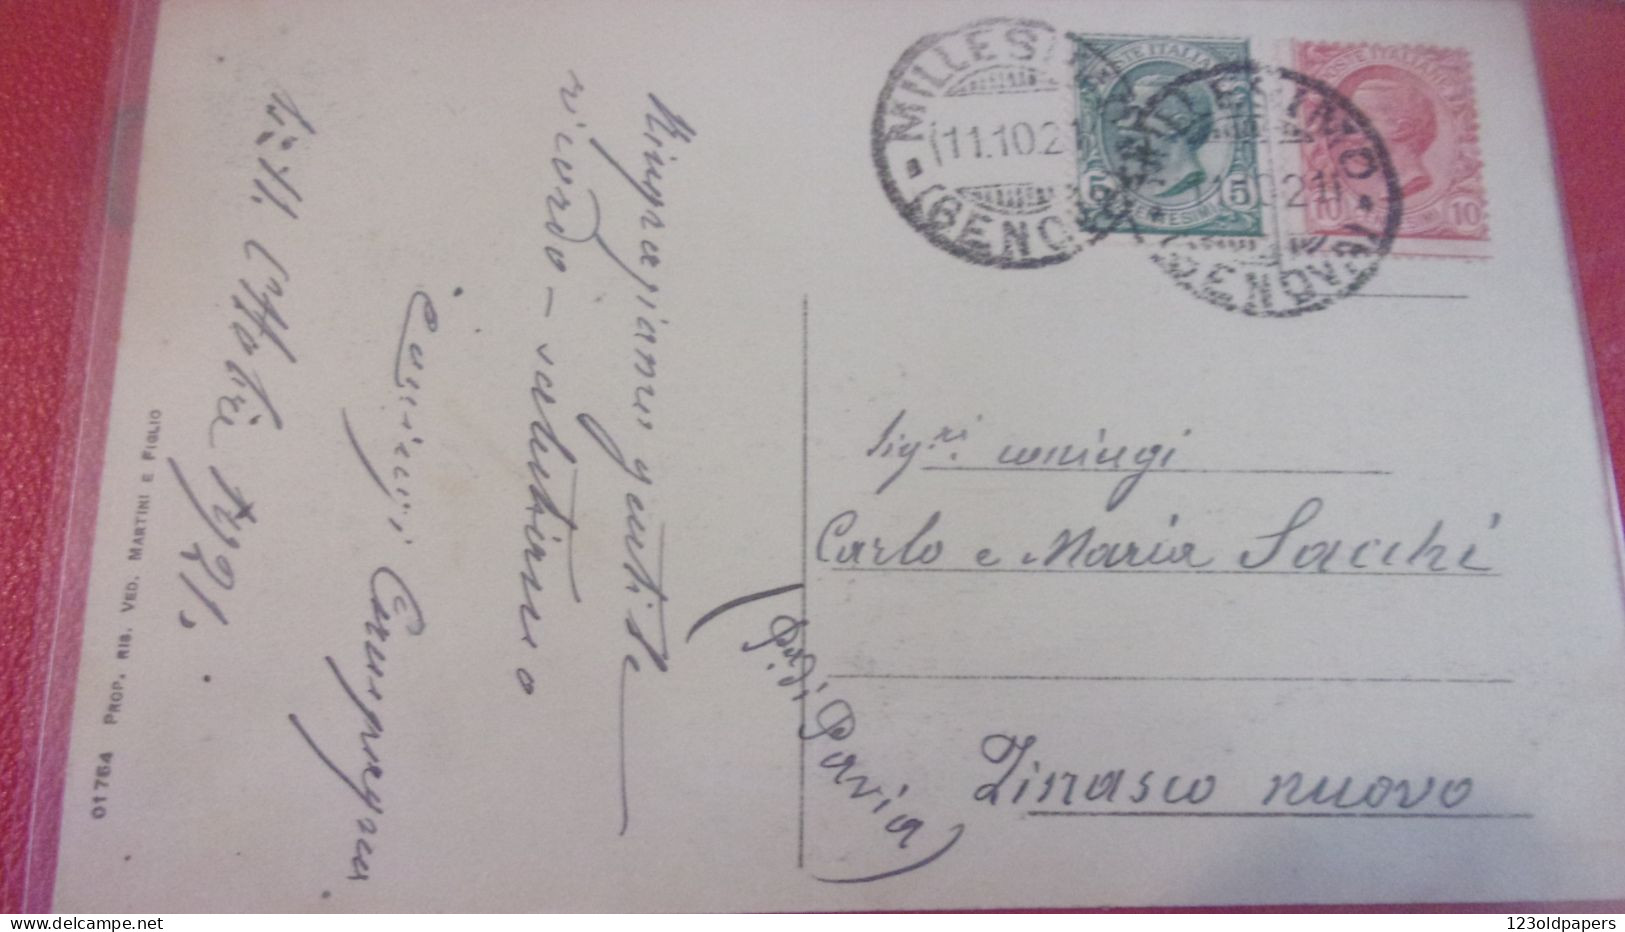 Ringraziamo gentile
ricordo - salutiamo
Coniugi Campagna
li 11 Ottobre 1921.
01764 PROP. RIS. VED. MARTINI E FIGLIO
MILLESIMO
11.10.21
(GENOVA)
POSTE ITALIANE
5 5
CENTESIMI
MILLESIMO
11.10.21
(GENOVA)
POSTE ITALIANE
10 10
CENTESIMI
Sig.ri coniugi
Carlo e Maria Sacchi
Zinasco nuovo
(P. di Pavia)
123oldpapers